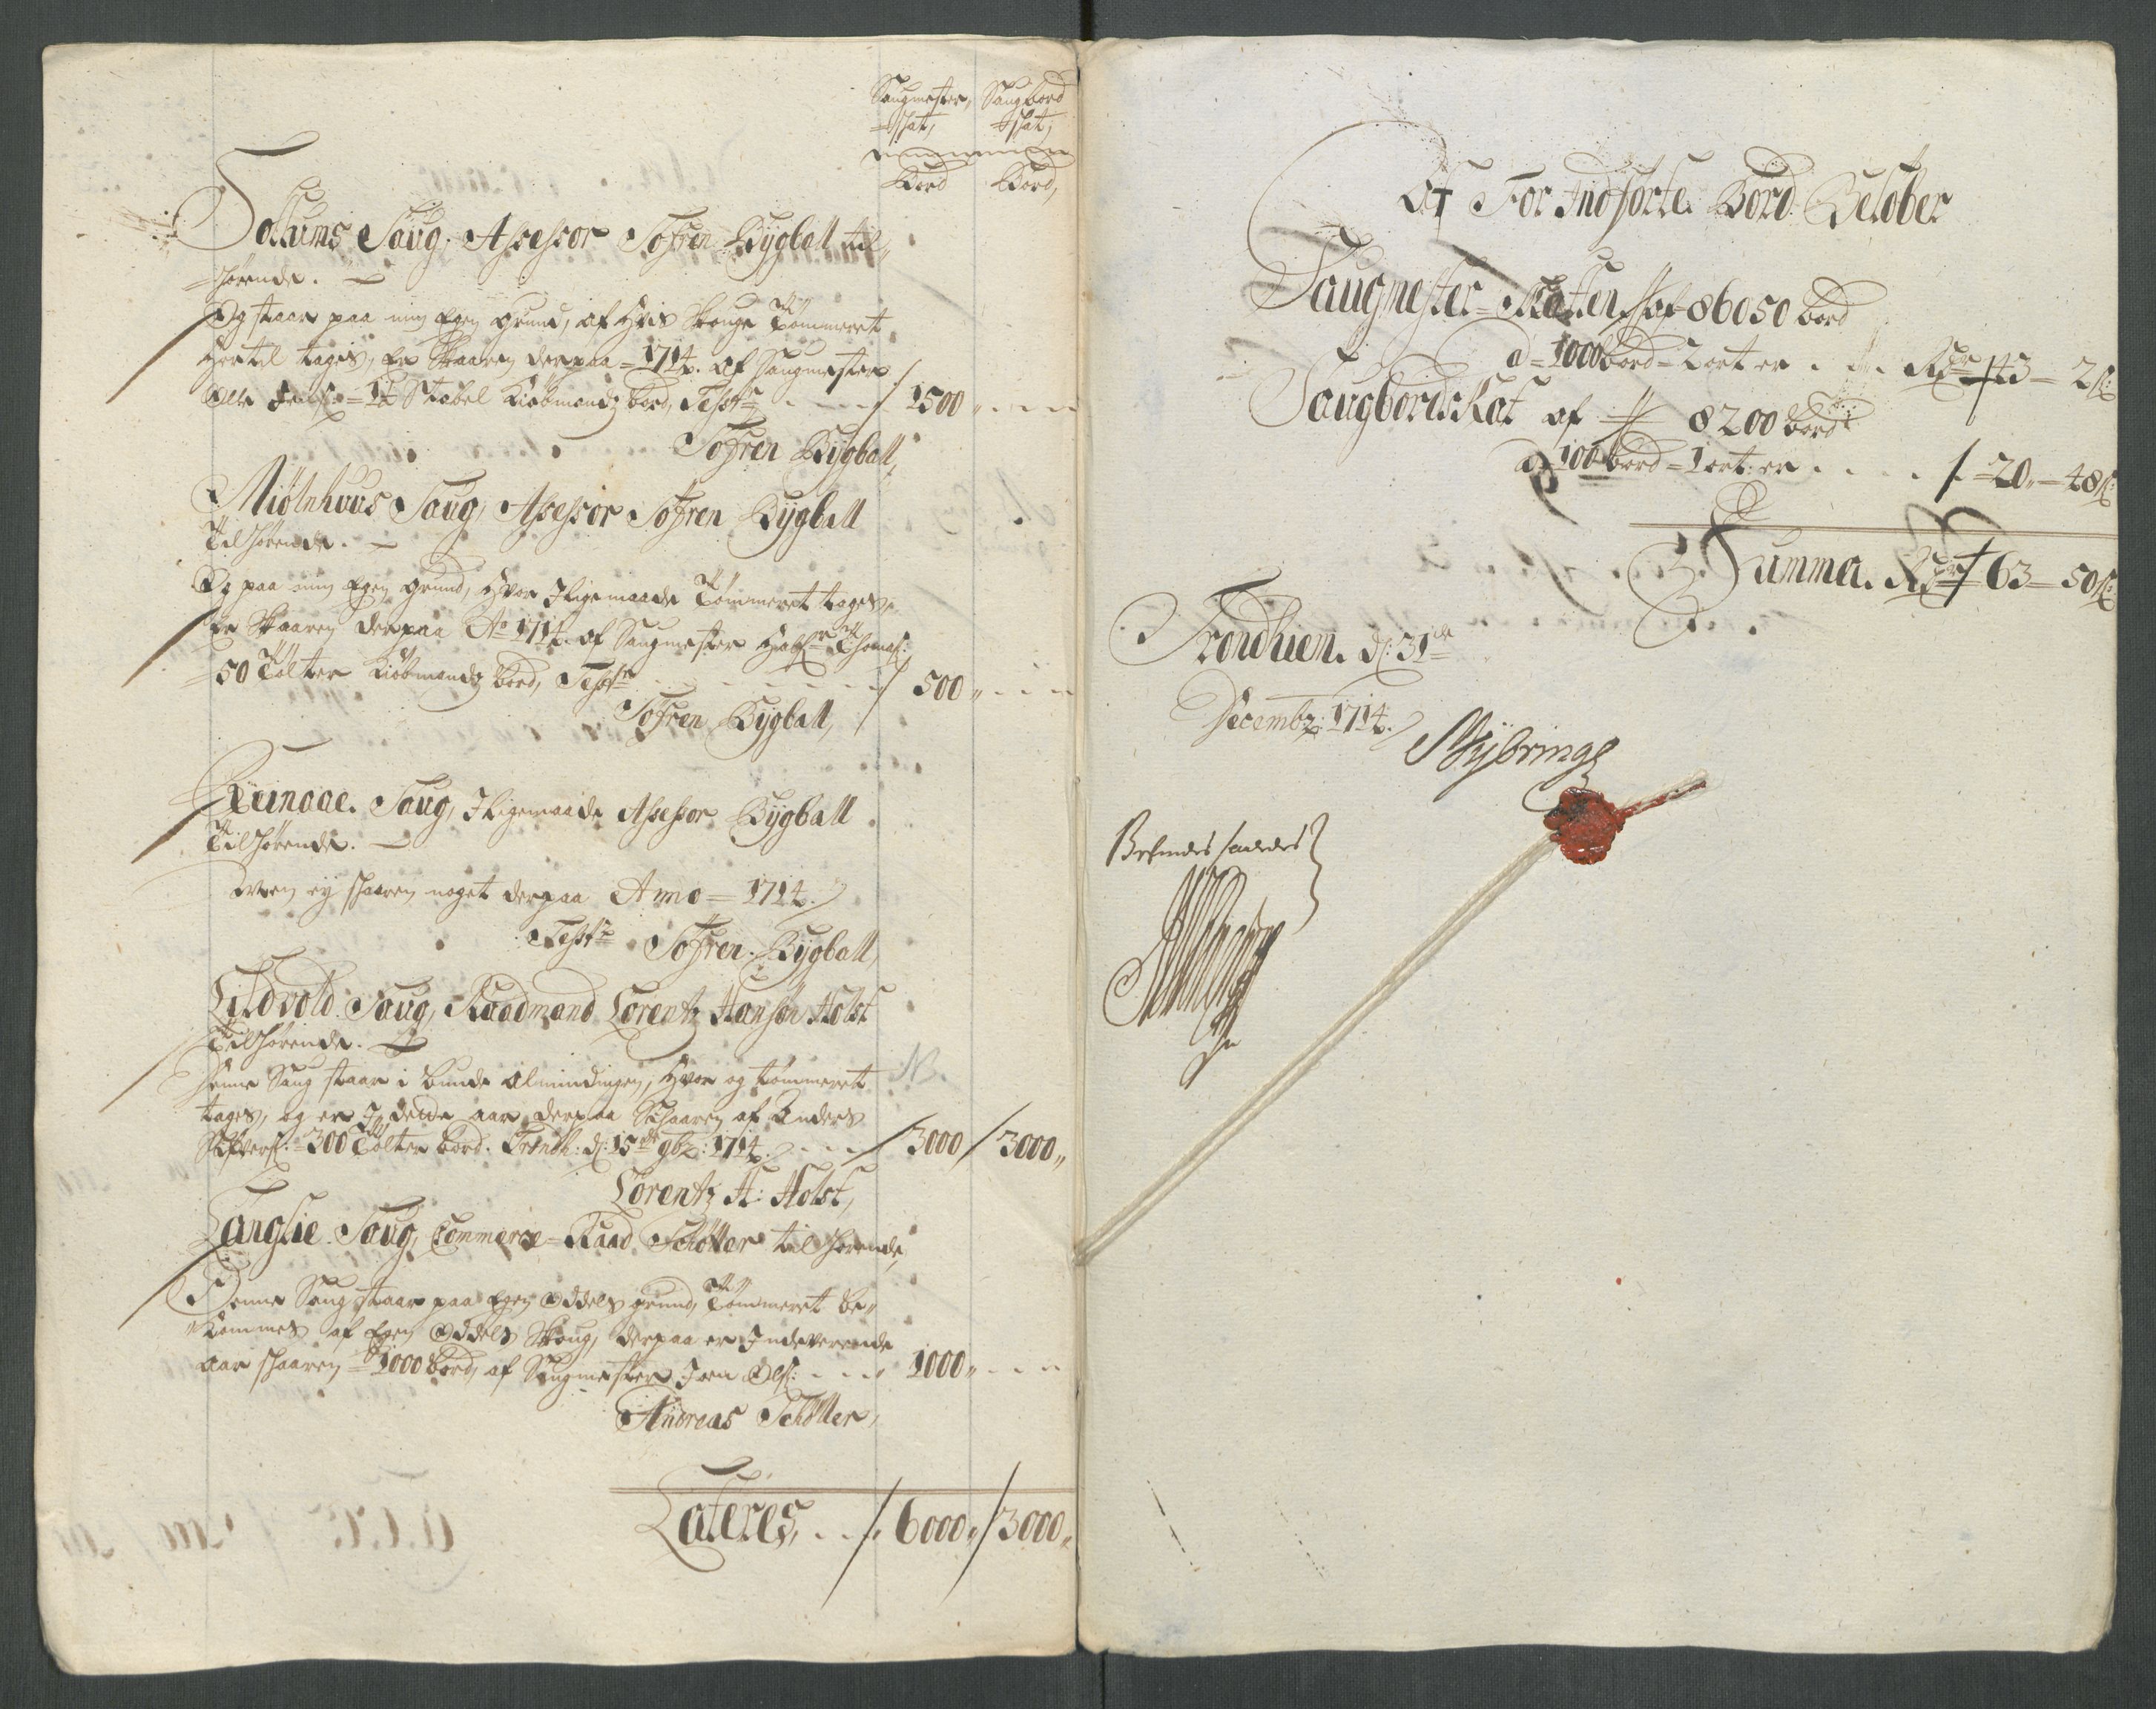 Saugmester, Saugbord
=skat, =skat,
Bord Bord,
Sollums Saug, Assessor Søfren Bygball til„
=hørende.
Og staar paa min Egen grund, af Hvis Skouge Tømmeret
Hertil tages, Er Skaaren derpaa = 1714. af Saugmester
= 1½ Stabel Kiøbmands bord, Test: 1500„
Søfren Bygball,
Miølnhuus Saug, Assessor Søfren Bygball
Tilhørende.
Og paa min Egen grund, Hvor Iligemaade Tømmeret tages,
Er Skaaren derpaa Ao 1714. af Saugmester Thomas:
=50 Tolter Kiøbmands bord, Test: 500„
Søfren Bygball,
Reinaae. Saug, Iligemaade Assessor Bygball
Tilhørende.
Men ey skaaren noget derpaa Anno = 1714.
Test: Søfren Bygball,
Lildvold Saug, Raadmand Lorentz Hansøn Holst
Tilhørende.
Denne Saug staar i bunde Almindingen, Hvor og tømmeret
tages, og er I dette aar derpaa Skaaren af Anders
Siversø: = 300 Tolter bord. Trondh: d: 15de 9br: 1714. 3000 / 3000„
Lorentz H: Holst,
Langlie Saug, Commerce=Raad Schøller tilhørende,
Denne Saug staar paa Egen Oddels grund, Tømmeret be„
„kommes af Egen Oddels Skoug, derpaa er Indeværende
aar skaaren = 1000 bord, af Saugmester Joen Ols: 1000„
Andreas Schøller,
Lateres, 6000„ / 3000„
Af For Indførte Bord Beløber
Saugmester=Skatten, af 86050 bord
a 1000 bord = 2 ort er Rdr 43 — 2ß:
SaugbordsKat af 8200 bord
a 100 bord = 1 ort: er 20„ — 48ß:
Summa. Rdr 63 — 50ß:
Trondhiem. d: 31de
Decembr: 1714.
Nybringh
Befindes saaledes